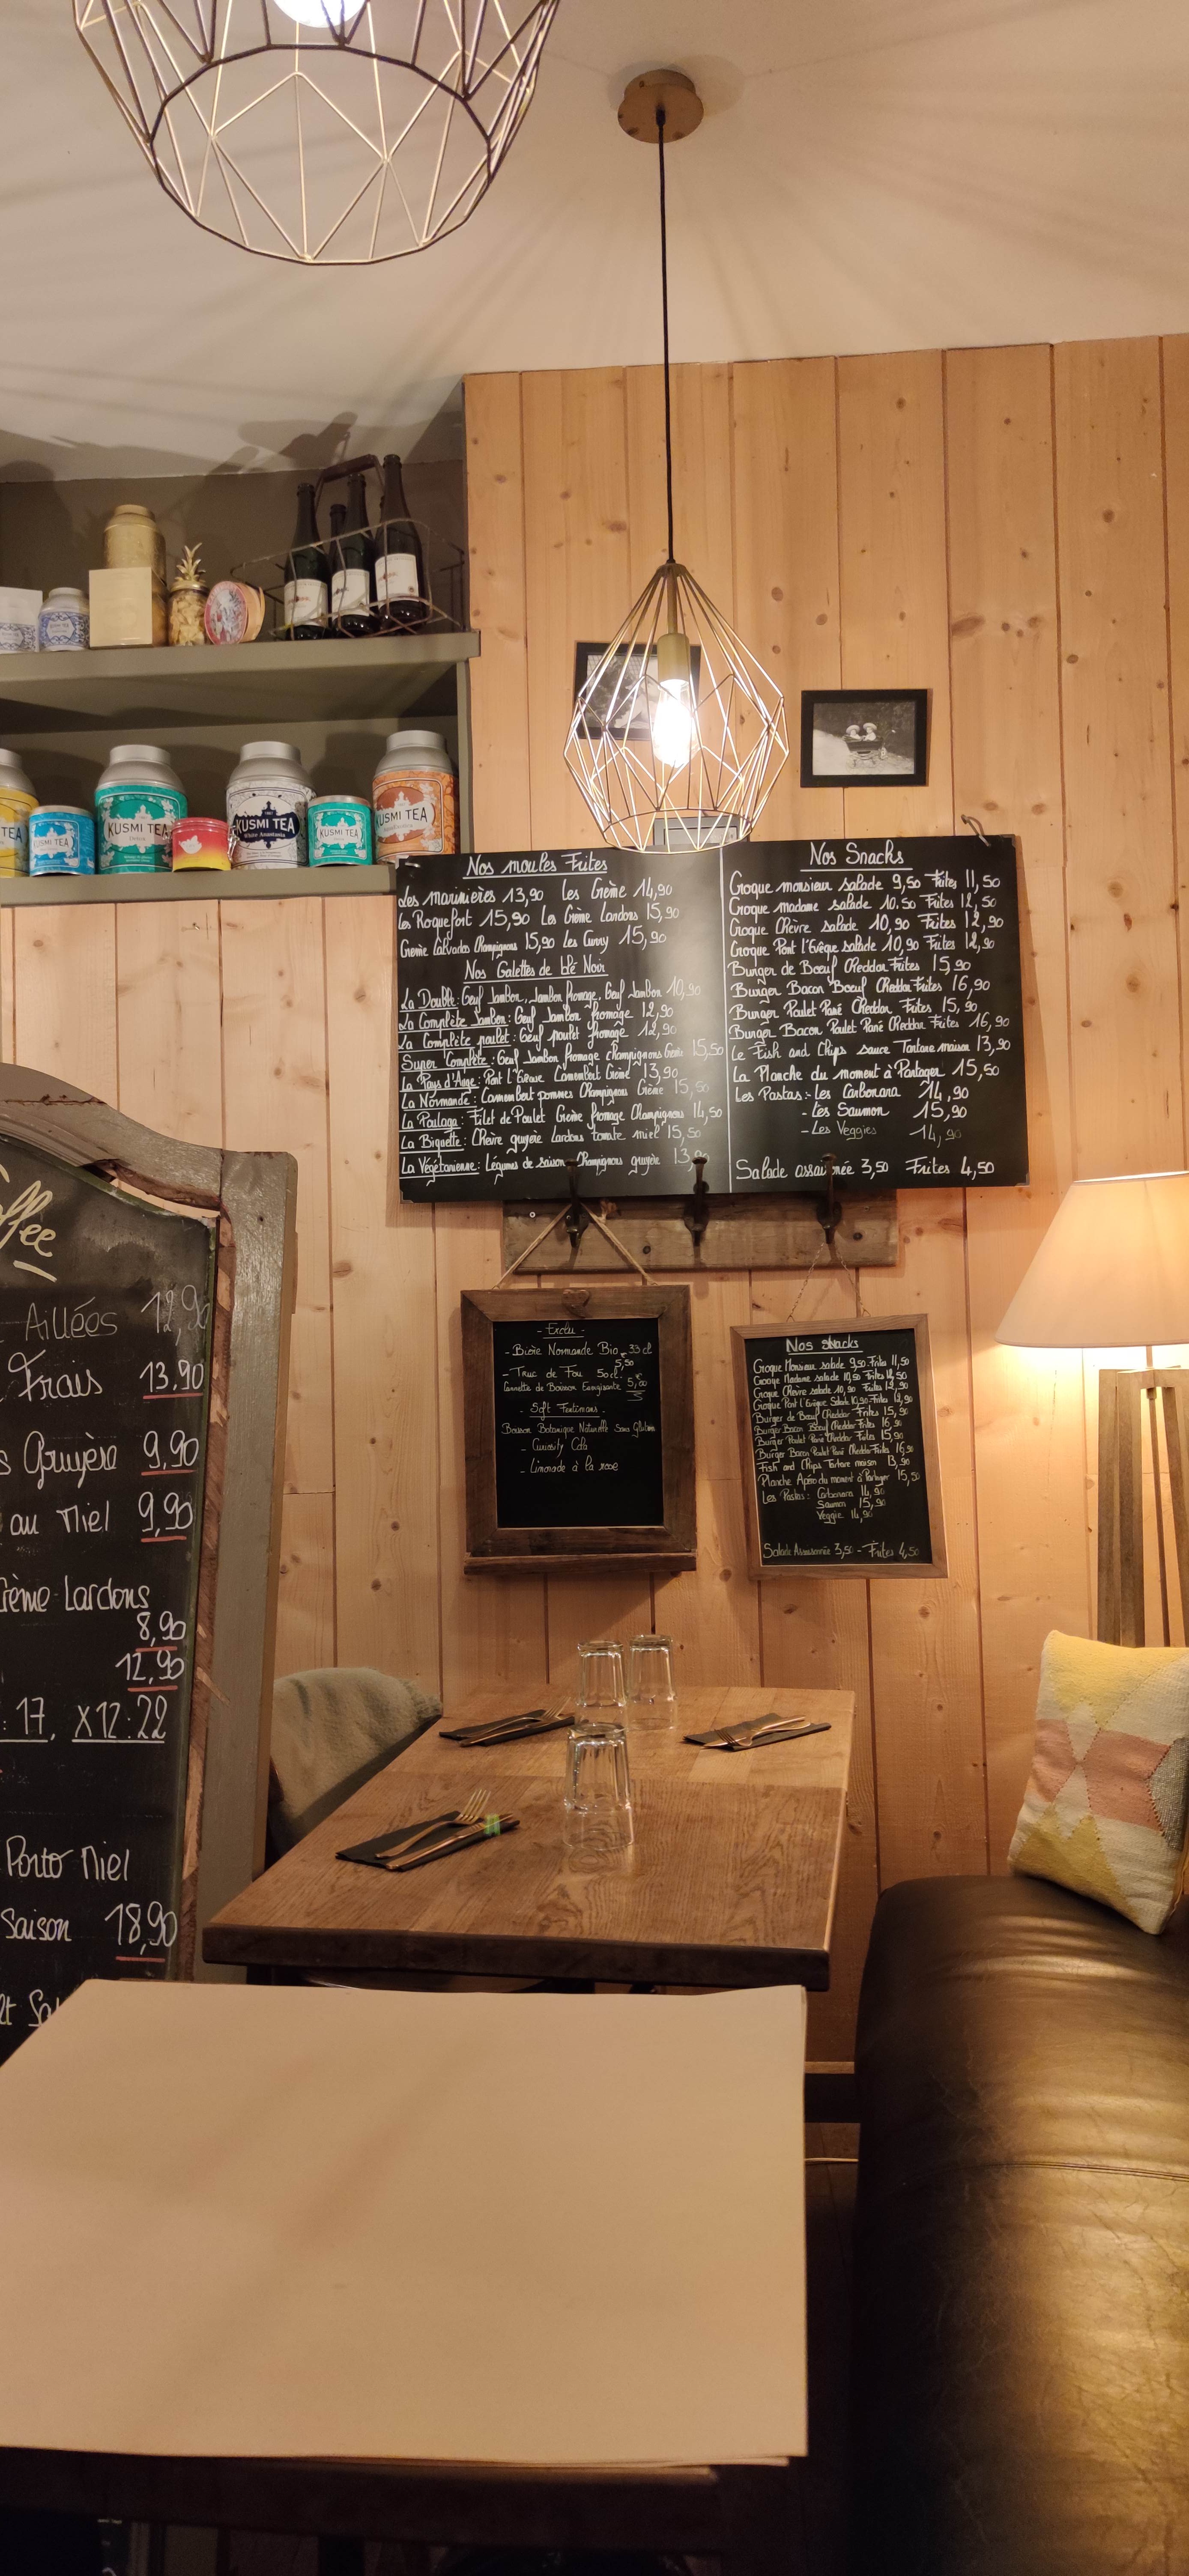 KUSMI TEA
KUSMI TEA
KUSMI TEA
White Anastasia
KUSMI TEA
KUSMI TEA
Nos moules Frites
Les marinières 13,90 Les Crème 14,90
Les Roquefort 15,90 Les Crème Lardons 15,90
Crème Calvados Champignons 15,90 Les Curry 15,90
Nos Galettes de blé Noir
La Double: Oeuf Jambon, Jambon fromage, Oeuf Jambon 10,90
La Complète Jambon: Oeuf Jambon fromage 12,90
La Complète poulet: Oeuf poulet fromage 12,90
Super Complète: Oeuf Jambon fromage champignons Crème 15,50
La Pays d'Auge: Pont L'Evêque Camembert Crème 13,90
La Normande: Camembert pommes Champignons Crème 15,50
La Poulaga: Filet de Poulet Crème fromage Champignons 14,50
La Biquette: Chèvre gruyère Lardons tomate miel 15,50
La Végétarienne: Légumes de saison Champignons gruyère 13,90
Nos Snacks
Croque monsieur salade 9,50 Frites 11,50
Croque madame salade 10,50 Frites 12,50
Croque Chèvre salade 10,90 Frites 12,90
Croque Pont l'Evêque salade 10,90 Frites 12,90
Burger de Boeuf Cheddar Frites 15,90
Burger Bacon Boeuf Cheddar Frites 16,90
Burger Poulet Pané Cheddar Frites 15,90
Burger Bacon Poulet Pané Cheddar Frites 16,90
Le Fish and Chips sauce Tartare maison 13,90
La Planche du moment à Partager 15,50
Les Pastas:- Les Carbonara 14,90
- Les Saumon 15,90
- Les Veggies 14,90
Salade assaisonnée 3,50 Frites 4,50
Aillées 12,90
Frais 13,90
Gruyère 9,90
au Miel 9,90
Crème Lardons
8,90
12,90
: 17, X12:22
Porto Miel
Saison 18,90
- Exclu -
- Bière Normande Bio 33 cl
5,50
- Truc de Fou 50cl:
Cannette de Boisson Energisante 5,00
- Soft Fentimans -
Boisson Botanique Naturelle Sans Gluten
- Curiosity Cola
- Limonade à la rose
Nos snacks
Croque Monsieur salade 9,50 Frites 11,50
Croque Madame salade 10,50 Frites 12,50
Croque Chèvre salade 10,90 Frites 12,90
Croque Pont l'Evêque Salade 10,90 Frites 12,90
Burger de Boeuf Cheddar Frites 15,90
Burger Bacon Boeuf Cheddar Frites 16,90
Burger Poulet Pané Cheddar Frites 15,90
Burger Bacon Poulet Pané Cheddar Frites 16,90
Fish and Chips Tartare maison 13,90
Planche Apéro du moment à Partager 15,50
Les Pastas: Carbonara 14,90
Saumon 15,90
Veggie 14,90
Salade Assaisonnée 3,50 - Frites 4,50